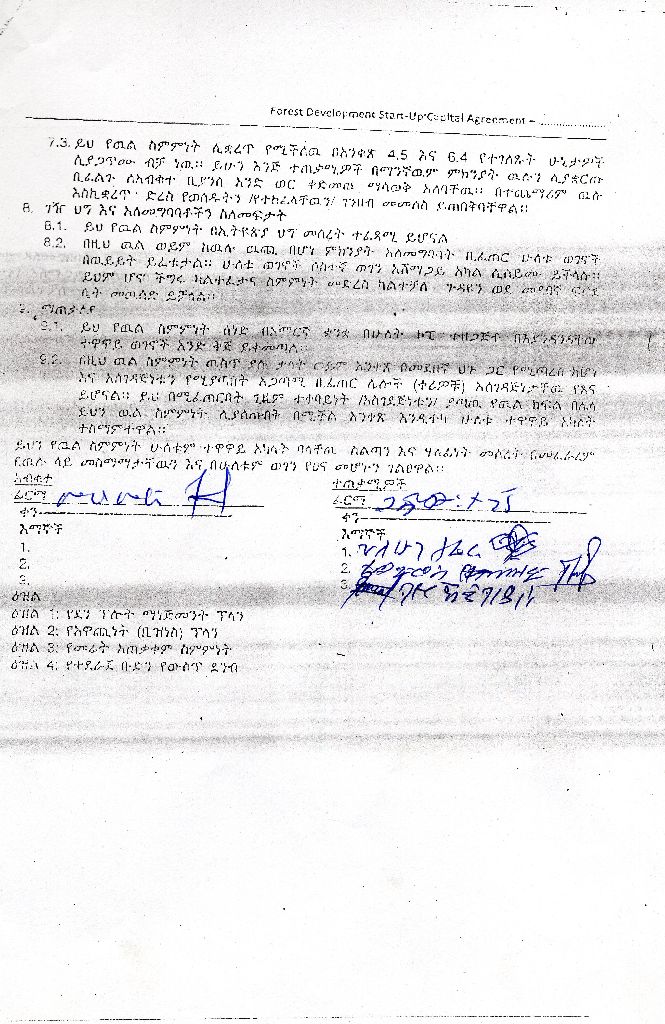 Forest Development Start-Up Capital Agreement – ....................
7.3. ይህ የዉል ስምምነት ሊቋረጥ የሚችለዉ በአንቀጽ 4.5 እና 6.4 የተገለጹት ሁኔታዎች
ሲያጋጥሙ ብቻ ነዉ። ይሁን እንጅ ተጠቃሚዎች በማንኛዉም ምክንያት ዉሉን ሊያቋርጡ
ቢፈልጉ ለአብቁተ ቢያንስ አንድ ወር ቀድመዉ ማሳወቅ አለባቸዉ። በተጨማሪም ዉሉ
እስኪቋረጥ ድረስ የወሰዱትን /የተከፈላቸዉን/ ገንዘብ መመለስ ይጠበቅባቸዋል።
8. ገዥ ህግ እና አለመግባባቶችን ስለመፍታት
8.1. ይህ የዉል ስምምነት በኢትዮጵያ ህግ መሰረት ተፈጻሚ ይሆናል
8.2. በዚህ ዉል ወይም ከዉሉ ዉጪ በሆነ ምክንያት አለመግባባት ቢፈጠር ሁለቱ ወገኖች
በዉይይት ይፈቱታል። ሁለቱ ወገኖች ሶስተኛ ወገን አሸማጋይ አካል ሊሰይሙ ይችላሉ።
ይህም ሆኖ ችግሩ ካልተፈታና ስምምነት መድረስ ካልተቻለ ጉዳዩን ወደ መደበኛ ፍርድ
ቤት መዉሰድ ይቻላል።
9. ማጠቃለያ
9.1. ይህ የዉል ስምምነት ሰነድ በአማርኛ ቋንቋ በሁለት ኮፒ ተዘጋጅቶ በእያንዳንዳቸዉ
ተዋዋይ ወገኖች እንድ ቅጅ ይቀመጣል።
9.2. በዚህ ዉል ስምምነት ዉስጥ ያሉ ቃላት ወይም አንቀጽ በመደበኛ ህጉ ጋር የሚጣረስ ከሆነ
እና አስገዳጅነቱን የሚያሳጣበት አጋጣሚ ቢፈጠር ሌሎች (ቀሪዎቹ) አስገዳጅነታቸዉ የፀና
ይሆናል። ይህ በሚፈጠርበት ጊዜም ተቀባይነት /አስገዳጅነቱን/ ያጣዉ የዉል ክፍል በሌላ
ይህን ዉል ስምምነት ሊያሰጠበት በሚችል አንቀጽ እንዲተካ ሁለቱ ተዋዋይ አካላት
ተስማምተዋል።
ይህን የዉል ስምምነት ሁለቱም ተዋዋይ አካላት ባላቸዉ ስልጣን እና ሃላፊነት መሰረት በመፈራረም
በዉሉ ላይ መስማማታቸዉን እና በሁለቱም ወገን የፀና መሆኑን ገልፀዋል።
አብቁተ
ተጠቃሚዎች
ፊርማ
ፊርማ
ቀን
ቀን
እማኞች
እማኞች
1.
1.
2.
2.
3.
3.
ዕዝል
ዕዝል 1: የደን ፕሎት ማነጅመንት ፕላን
ዕዝል 2: የአዋጪነት (ቢዝነስ) ፕላን
ዕዝል 3: የመሬት አጠቃቀም ስምምነት
ዕዝል 4: የተደራጀ ቡድን የውስጥ ደንብ